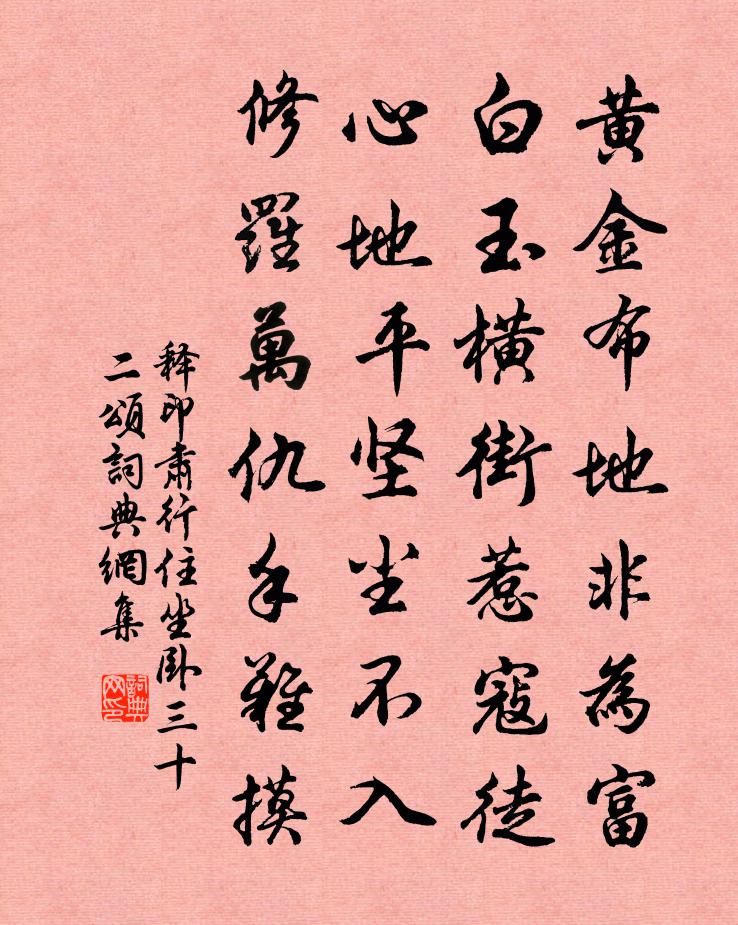 黄金布地非為富
白玉橫街惹寇徒
心地平坚尘不入
修羅萬仇手難摸
释印肅行住坐卧三十
二頌詞典網集
詞典
网印